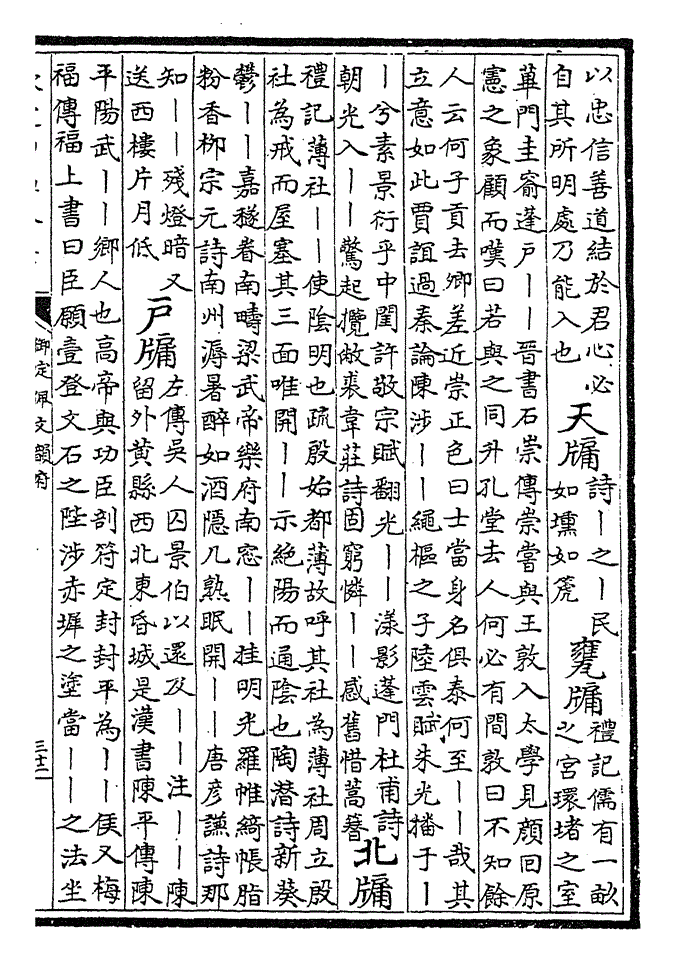 以忠信善道結於君心必
自其所明處乃能入也
天牖
詩丨之丨民
如壎如箎
甕牖
禮記儒有一畝
之宮環堵之室
蓽門圭窬蓬戶丨丨晉書石崇傳崇嘗與王敦入太學見顏回原
憲之象顧而嘆曰若與之同升孔堂去人何必有間敦曰不知餘
人云何子貢去卿差近崇正色曰士當身名俱泰何至丨丨哉其
立意如此賈誼過秦論陳涉丨丨繩樞之子陸雲賦朱光播于丨
丨兮素景衍乎中閨許敬宗賦翻光丨丨漾影蓬門杜甫詩
朝光入丨丨驚起攬敝裘韋莊詩固窮憐丨丨感舊惜蒿簪
北牖
禮記薄社丨丨使陰明也疏殷始都薄故呼其社為薄社周立殷
社為戒而屋塞其三面唯開丨丨示絕陽而通陰也陶潛詩新葵
鬱丨丨嘉穟眷南疇梁武帝樂府南窓丨丨挂明光羅帷綺帳脂
粉香栁宗元詩南州溽暑醉如酒隱几熟眠開丨丨唐彥謙詩那
知丨丨殘燈暗又
送西樓片月低
戶牖
左傳吳人囚景伯以還及丨丨注丨丨陳
留外黃縣西北東昏城是漢書陳平傳陳
平陽武丨丨鄉人也高帝與功臣剖符定封封平為丨丨侯又梅
福傳福上書曰臣願壹登文石之陛涉赤墀之塗當丨丨之法坐
御定佩文韻府
三十二